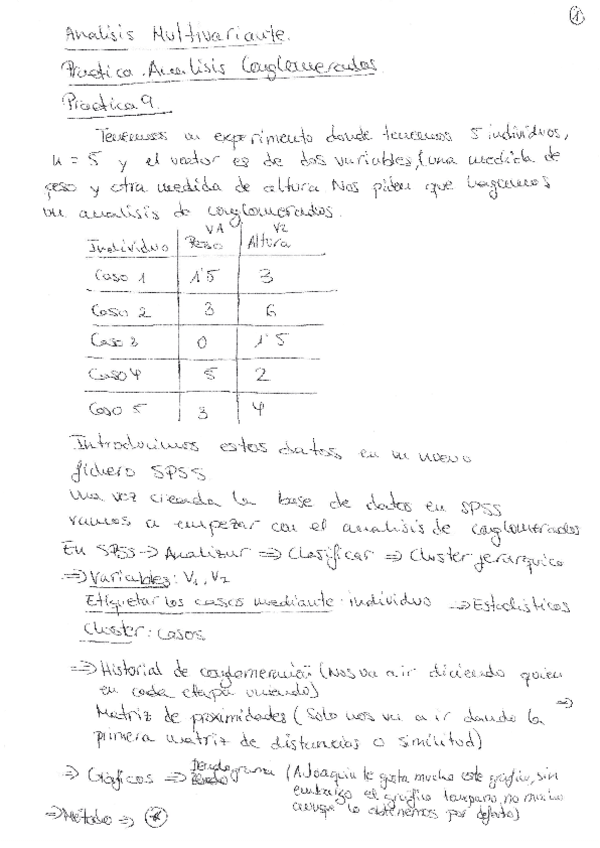 1
Analisis Multivariante.
Practica. Analisis Conglomerados
Practica 9.
Tenemos un experimento donde tenemos 5 individuos,
n = 5 y el vector es de dos variables, (una medida de
peso y otra medida de altura Nos piden que hagamos
un analisis de conglomerados.
V1 V2
Individuo Peso Altura
Caso 1 1'5 3
Caso 2 3 6
Caso 3 0 1'5
Caso 4 5 2
Caso 5 3 4
Introducimos estos datos en un nuevo
fichero SPSS
Una vez creada la base de datos en SPSS
vamos a empezar con el analisis de conglomerados
En SPSS → Analizar ⇒ Clasificar ⇒ Cluster jerarquico
⇒ Variables: V1, V2
Etiquetar los casos mediante: individuo → Estadisticos
Cluster: Casos
⇒ Historial de conglomeración (Nos va a ir diciendo quien
en cada etapa uniendo) ⇒
Matriz de proximidades (Solo nos va a ir dando la
primera matriz de distancias o similitud)
⇒ Gráficos ⇒ Dendograma (A Joaquin le gusta mucho este grafico, sin
embargo el grafico tempano, no mucho
aunque lo obtenemos por defecto)
⇒ Método ⇒ *